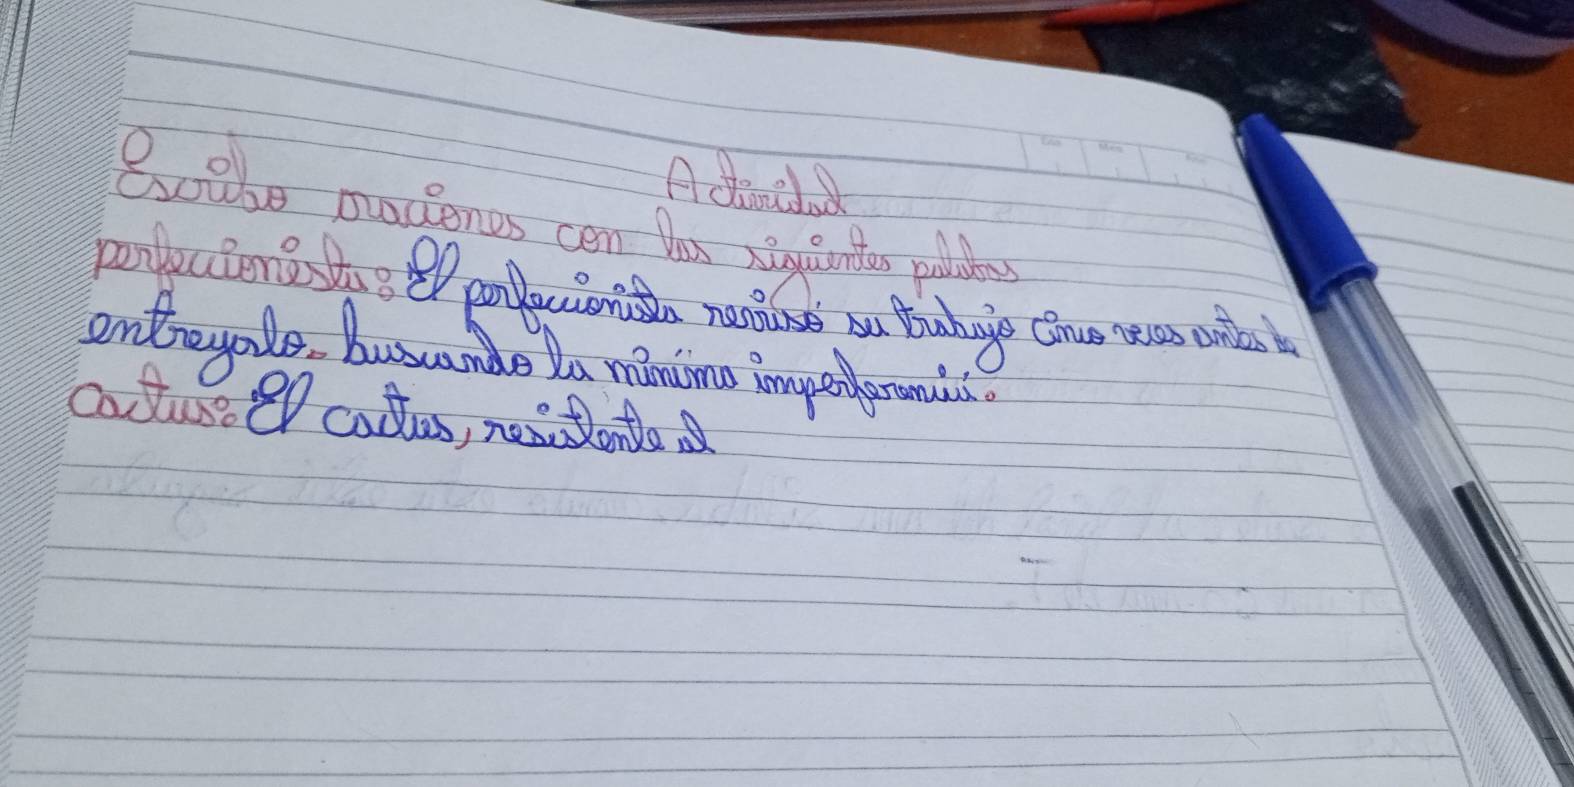 Actividad
Escribo oraciones con las siguientes palabras
perfeccionista: El perfeccionista revisó su trabajo cinco veces antes de
entregarlo. buscando la mínima
Cactus: El cactus, resistente al